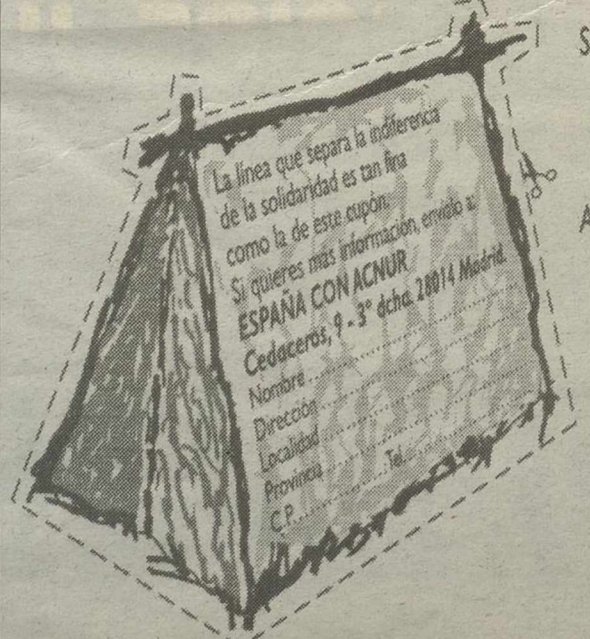 La línea que separa la indiferencia
de la solidaridad es tan fina
como la de este cupón.
Si quieres más información, envíalo a:
ESPAÑA CON ACNUR
Cedaceros, 9 - 3º dcha. 28014 Madrid.
Nombre
Dirección
Localidad
Provincia
C.P. Tel.
S
A